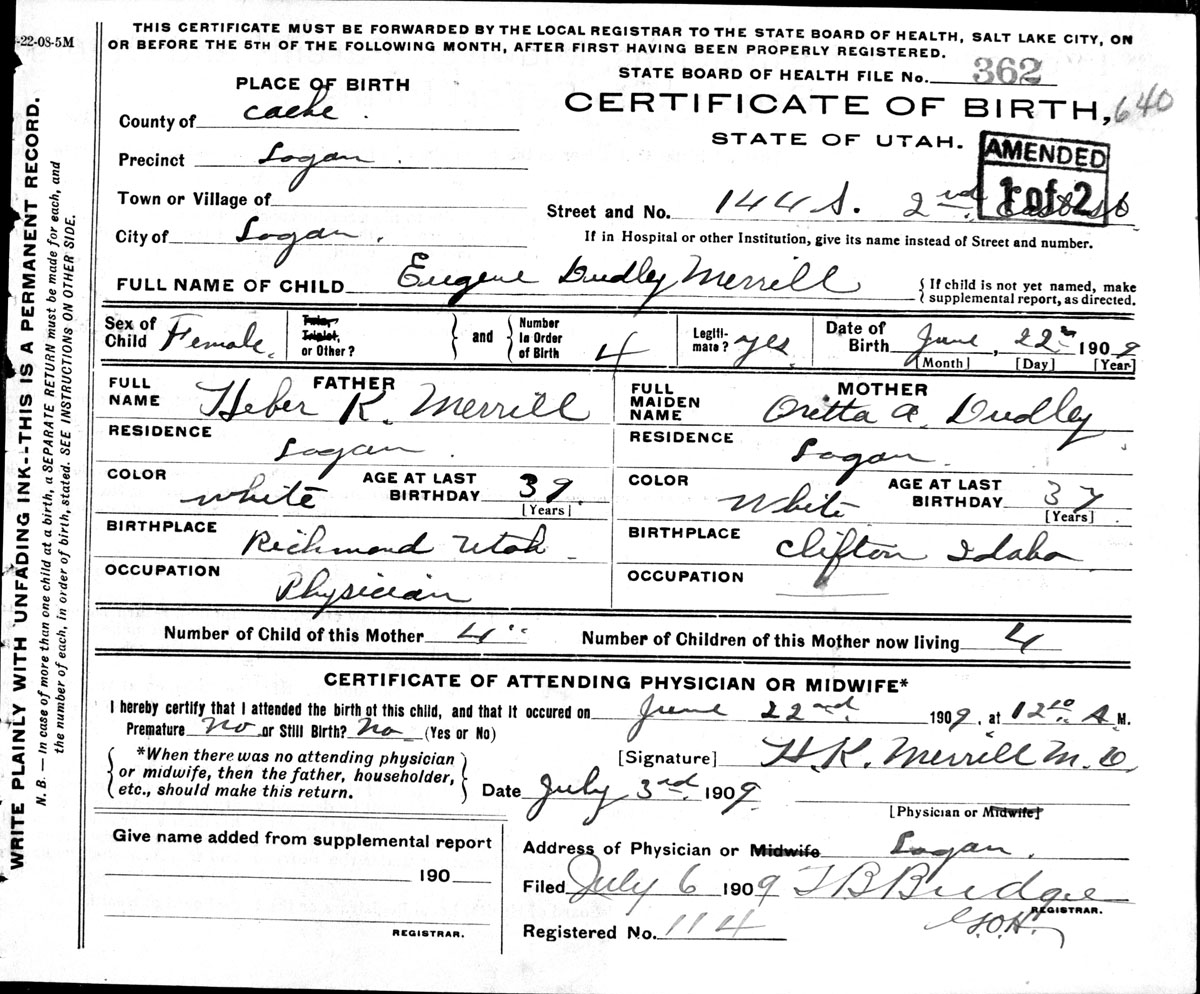 -22-08-5M
THIS CERTIFICATE MUST BE FORWARDED BY THE LOCAL REGISTRAR TO THE STATE BOARD OF HEALTH, SALT LAKE CITY, ON
OR BEFORE THE 5TH OF THE FOLLOWING MONTH, AFTER FIRST HAVING BEEN PROPERLY REGISTERED.
STATE BOARD OF HEALTH FILE No. 362
PLACE OF BIRTH
CERTIFICATE OF BIRTH, 640
County of Cache.
STATE OF UTAH.
AMENDED
1 of 2
Precinct Logan.
Town or Village of
Street and No. 144 S. 2nd East St
City of Logan.
If in Hospital or other Institution, give its name instead of Street and number.
FULL NAME OF CHILD Eugene Dudley Merrill { If child is not yet named, make
supplemental report, as directed.
Sex of Child Female. Twin, Triplet, or Other? } and { Number in Order of Birth 4 Legiti-mate? yes Date of Birth June, 22nd 1909
[Month] [Day] [Year]
FATHER
FULL NAME Heber K. Merrill
MOTHER
FULL MAIDEN NAME Oretta A. Dudley
RESIDENCE Logan.
RESIDENCE Logan.
COLOR White AGE AT LAST BIRTHDAY 39 [Years]
COLOR White AGE AT LAST BIRTHDAY 37 [Years]
BIRTHPLACE Richmond Utah
BIRTHPLACE Clifton Idaho
OCCUPATION Physician
OCCUPATION
Number of Child of this Mother 4th Number of Children of this Mother now living 4
CERTIFICATE OF ATTENDING PHYSICIAN OR MIDWIFE*
I hereby certify that I attended the birth of this child, and that it occured on June 22nd. 1909, at 12 10 A.M.
Premature No or Still Birth? No (Yes or No)
{ *When there was no attending physician
or midwife, then the father, householder,
etc., should make this return. }
[Signature] H. K. Merrill M. D.
Date July 3rd 1909
[Physician or Midwife]
Give name added from supplemental report
190
REGISTRAR.
Address of Physician or Midwife Logan.
Filed July 6 1909 T B Budge
REGISTRAR.
G.O.H.
Registered No. 114
WRITE PLAINLY WITH UNFADING INK--THIS IS A PERMANENT RECORD.
N. B. — In case of more than one child at a birth, a SEPARATE RETURN must be made for each, and
the number of each, in order of birth, stated. SEE INSTRUCTIONS ON OTHER SIDE.